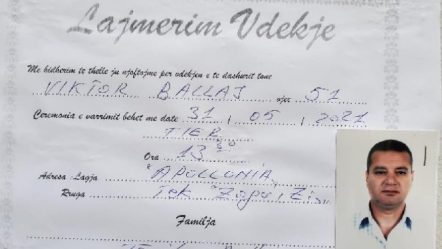 Lajmerim Vdekje
Me hidherim te thelle ju njoftojme per vdekjen e te dashurit tone
VIKTOR BALLAJ vjec 51
Ceremonia e varrimit behet me date 31, 05, 2021
FIER
Ora 13 30
Adresa Lagja "APOLLONIA"
Rruga Tek
Familja